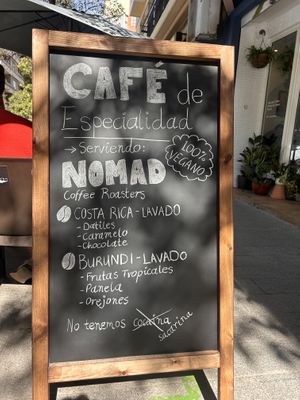 CAFÉ de
Especialidad
→ Sirviendo:
100% VEGANO
NOMAD
Coffee Roasters
COSTA RICA - LAVADO
- Datiles
- Caramelo
- Chocolate
BURUNDI - LAVADO
- Frutas Tropicales
- Panela
- Orejones
No tenemos cocaína
sacarina